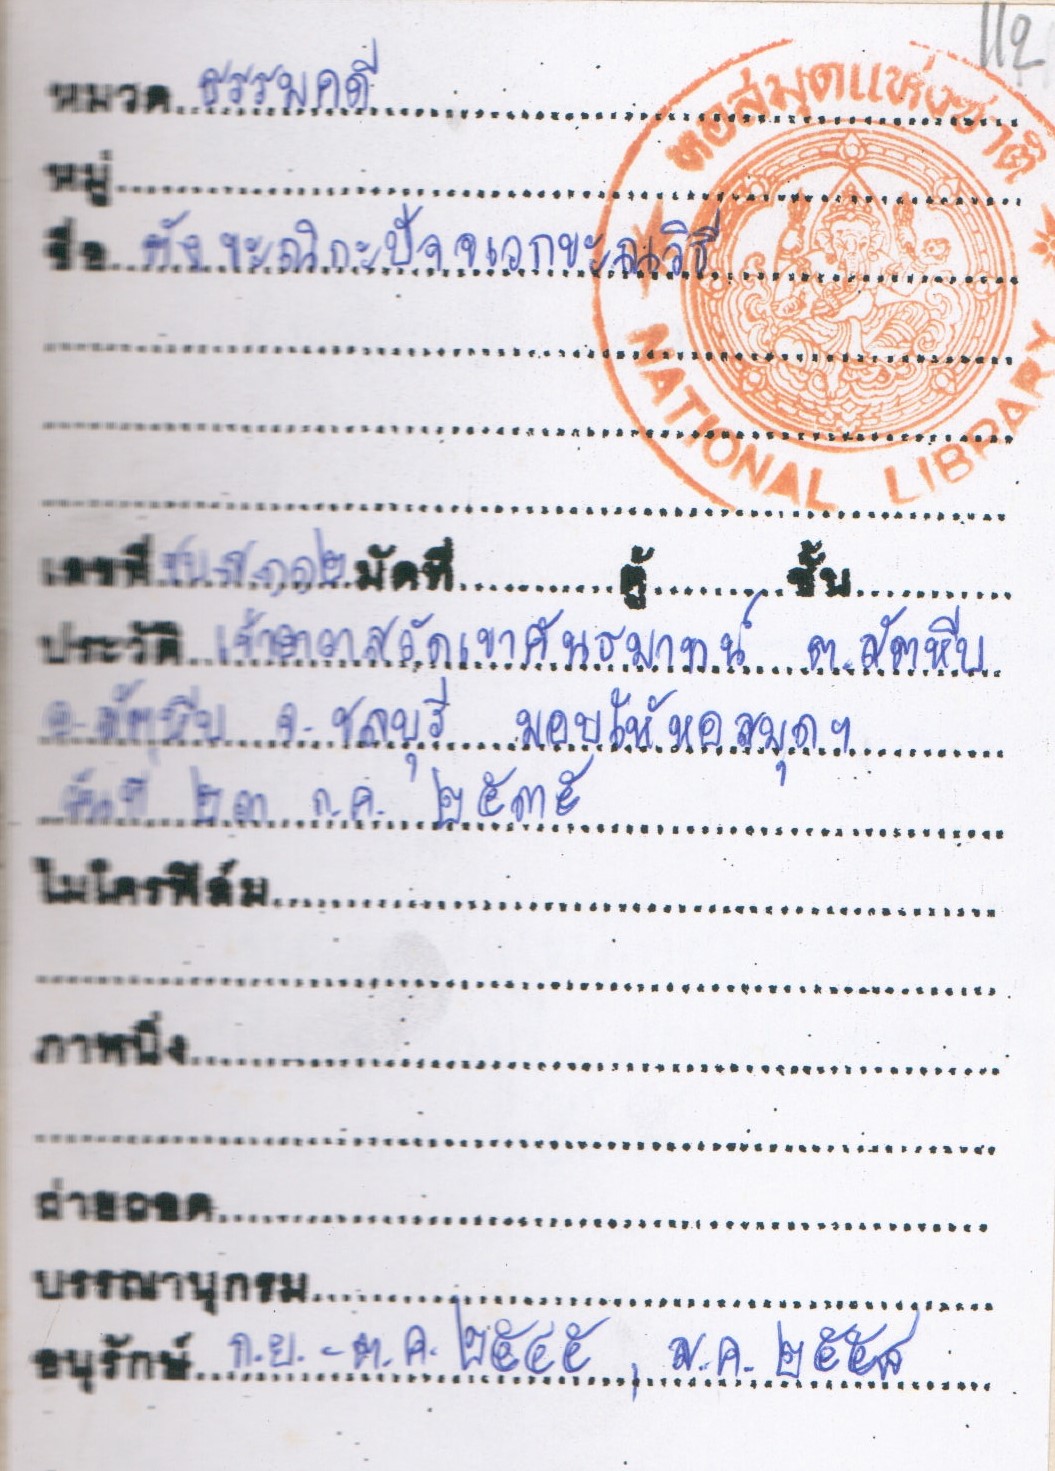 112
หอสมุดแห่งชาติ
NATIONAL LIBRARY
หมวด ธรรมคดี
หมู่
ชื่อ ตังขะณิกะปัจจเวกขะณวิธี
เลขที่ ชบ.ส.๑๑๒ มัดที่ ตู้ ชั้น
ประวัติ เจ้าอาวาสวัดเขาคันธมาทน์ ต.สัตหีบ
อ.สัตหีบ จ.ชลบุรี มอบให้หอสมุดฯ
๒๓ ก.ค. ๒๕๓๕
ไมโครฟิล์ม
ภาพนิ่ง
ถ่ายถอด
บรรณานุกรม
อนุรักษ์ ก.ย.-ต.ค. ๒๕๔๕ , ม.ค. ๒๕๕๘